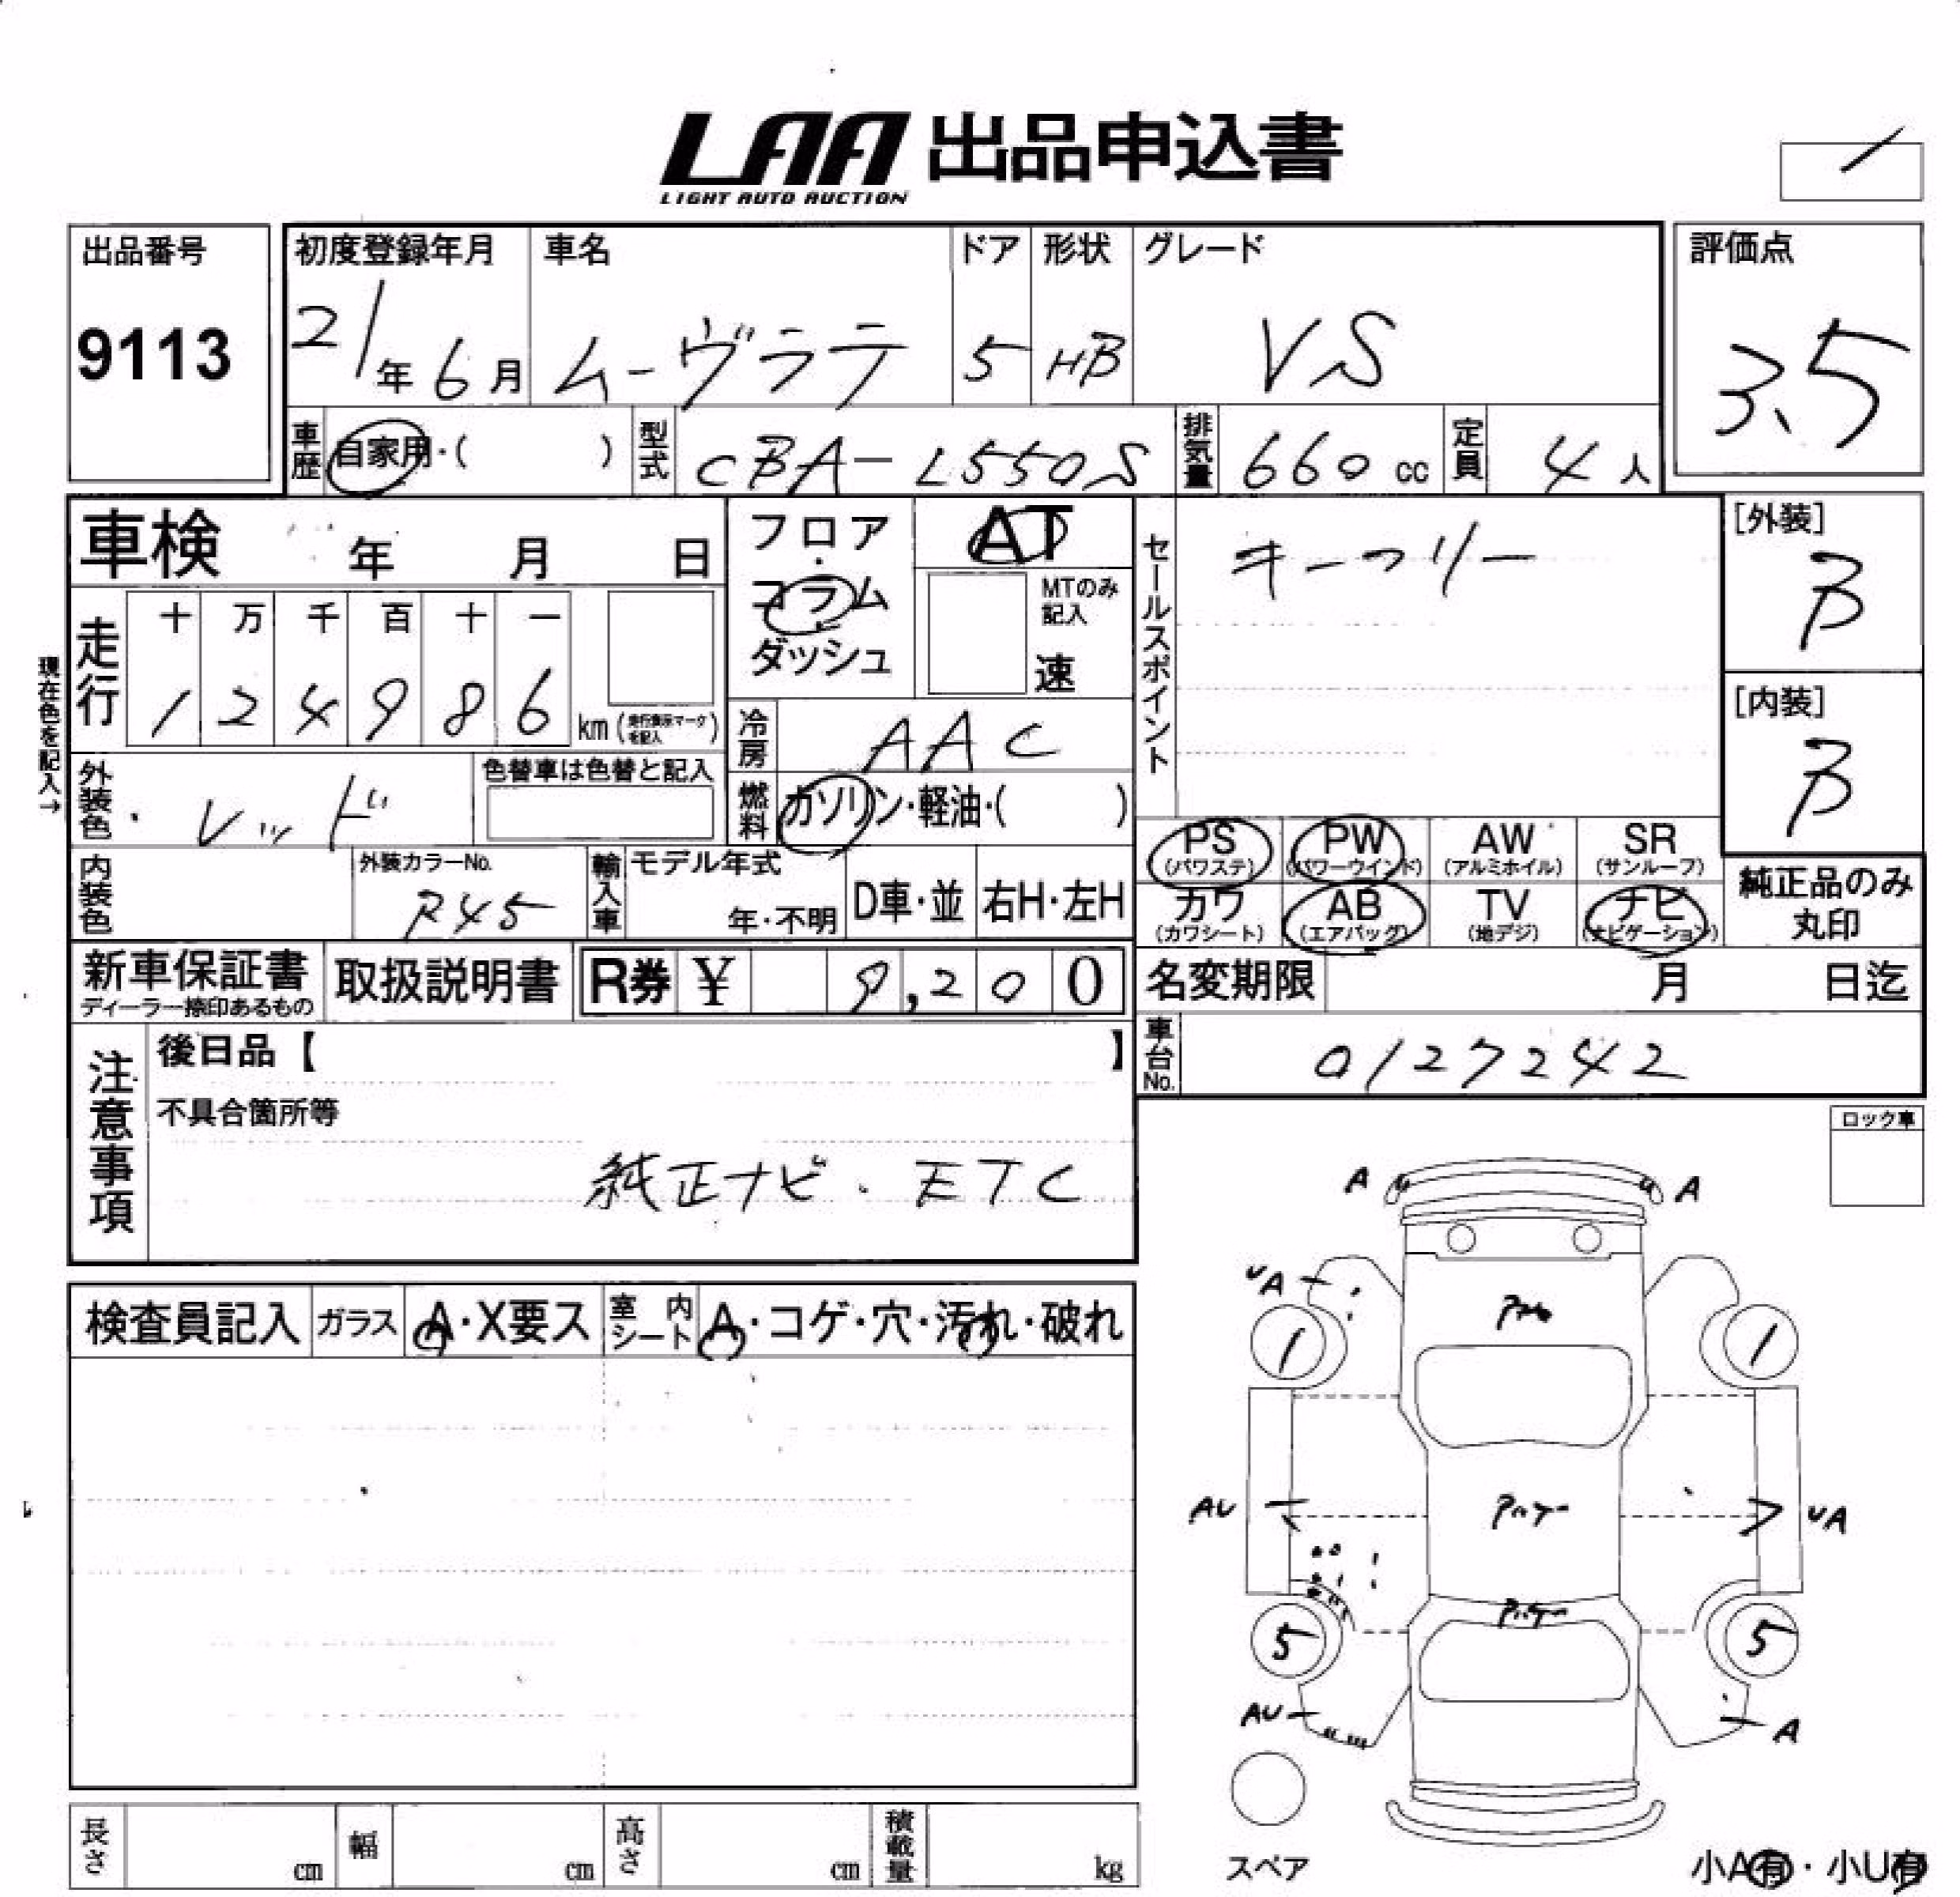 LAA 出品申込書
LIGHT AUTO AUCTION
出品番号
9113
初度登録年月
21年6月
車名
ムーヴラテ
ドア
5
形状
HB
グレード
VS
評価点
3.5
車歴 自家用・( )
型式 CBA-L550S
排気量 660 cc
定員 4人
車検 年 月 日
フロア・コラム・ダッシュ
AT
MTのみ記入
速
セールスポイント
キーフリー
[外装]
B
[内装]
B
現在色を記入→
走行
十 万 千 百 十 一
1 2 4 9 8 6 km (走行表示マークを記入)
冷房 AAC
外装色・レッド
色替車は色替と記入
燃料 ガソリン・軽油・( )
PS (パワステ) PW (パワーウインド) AW (アルミホイル) SR (サンルーフ)
カワ (カワシート) AB (エアバッグ) TV (地デジ) ナビ (ナビゲーション)
純正品のみ丸印
内装色
外装カラーNo.
R45
輸入車 モデル年式
年・不明 D車・並 右H・左H
新車保証書
ディーラー捺印あるもの
取扱説明書
R券 ¥ 9,200
名変期限 月 日迄
車台No. 0127242
注意事項
後日品【 】
不具合箇所等
純正ナビ・ETC
ロック車
検査員記入 ガラス A・X要ス 室内シート A・コゲ・穴・汚れ・破れ
A A
UA
1 1
AU UA
5 5
AU A
スペア
長さ cm 幅 cm 高さ cm 積載量 kg
小A有・小U有